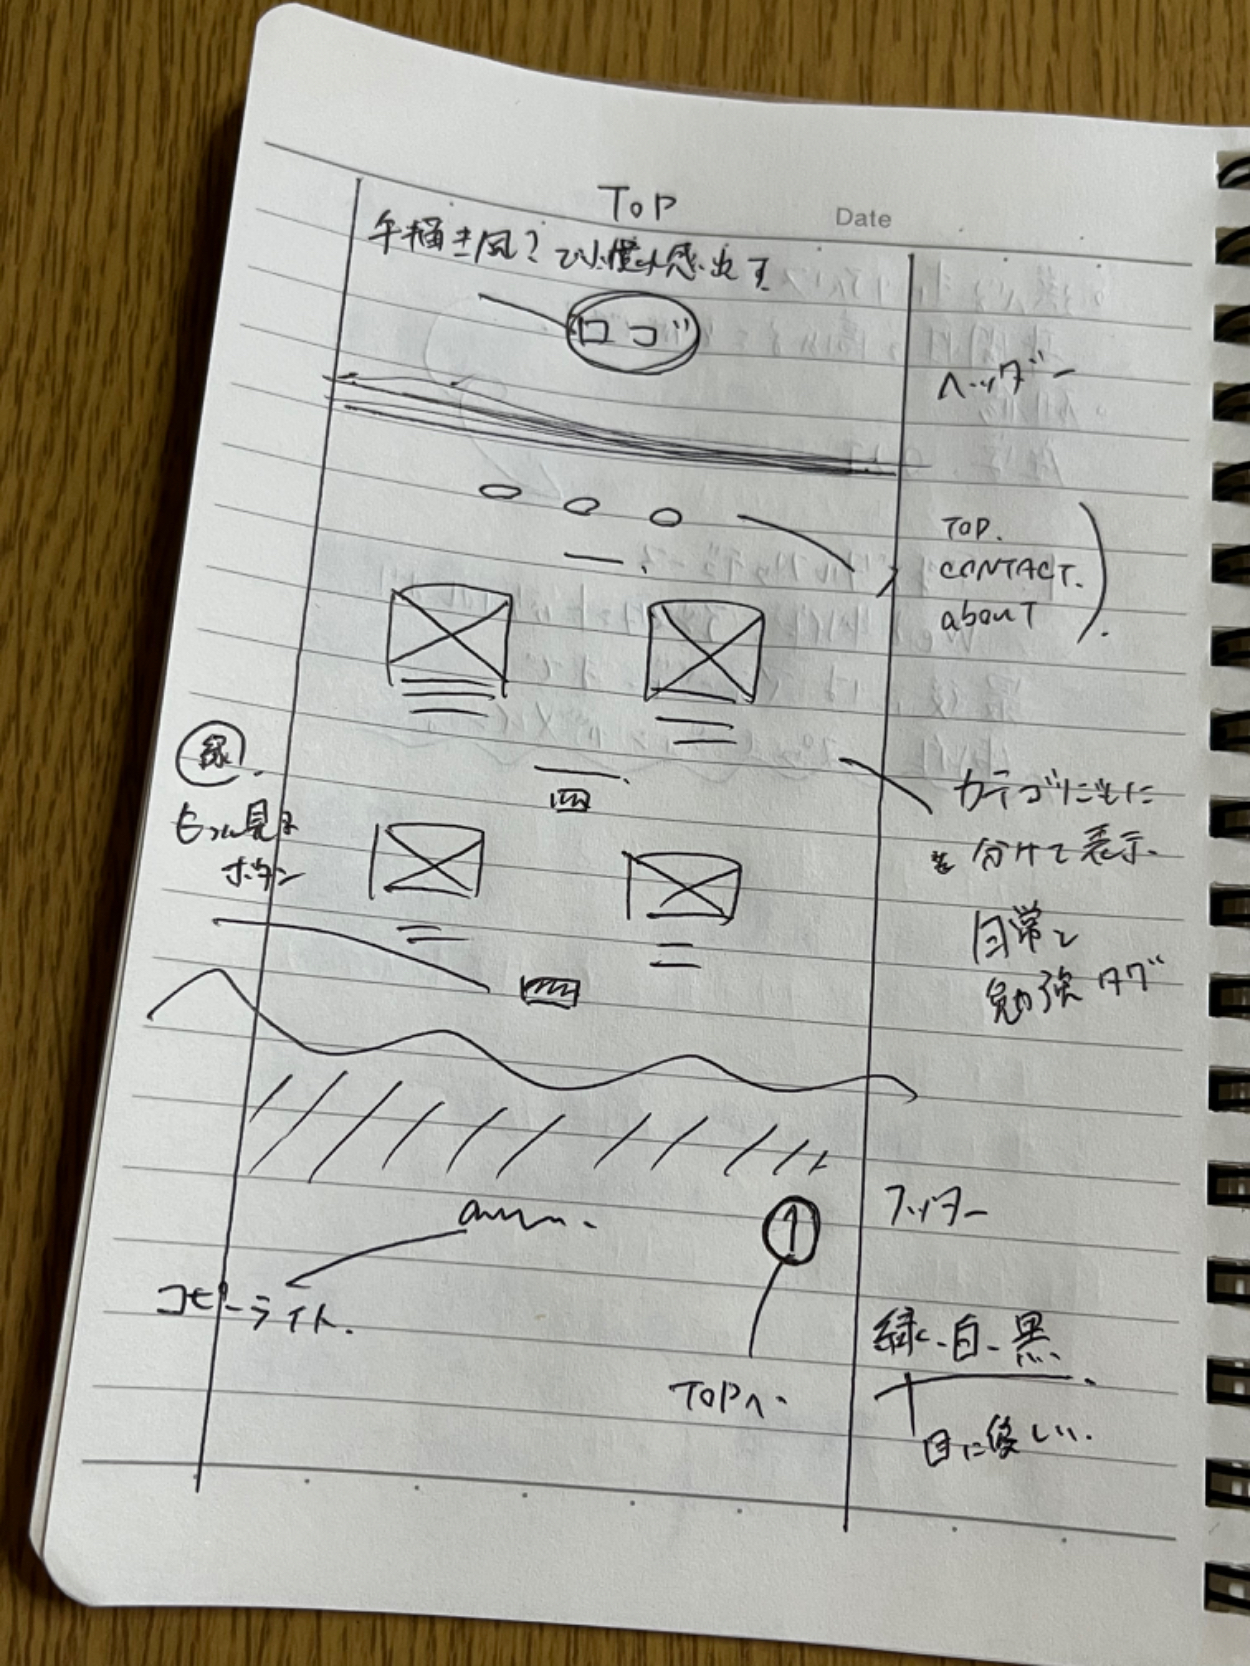 TOP
Date
手描き風?で小慣れ感出す
ロゴ
ヘッダー
TOP.
CONTACT.
about
緑.
もっと見る
ボタン
カテゴリごとに
分けて表示.
日常と
勉強タグ
フッター
コピーライト.
TOPへ.
緑、白、黒.
目に優しい.